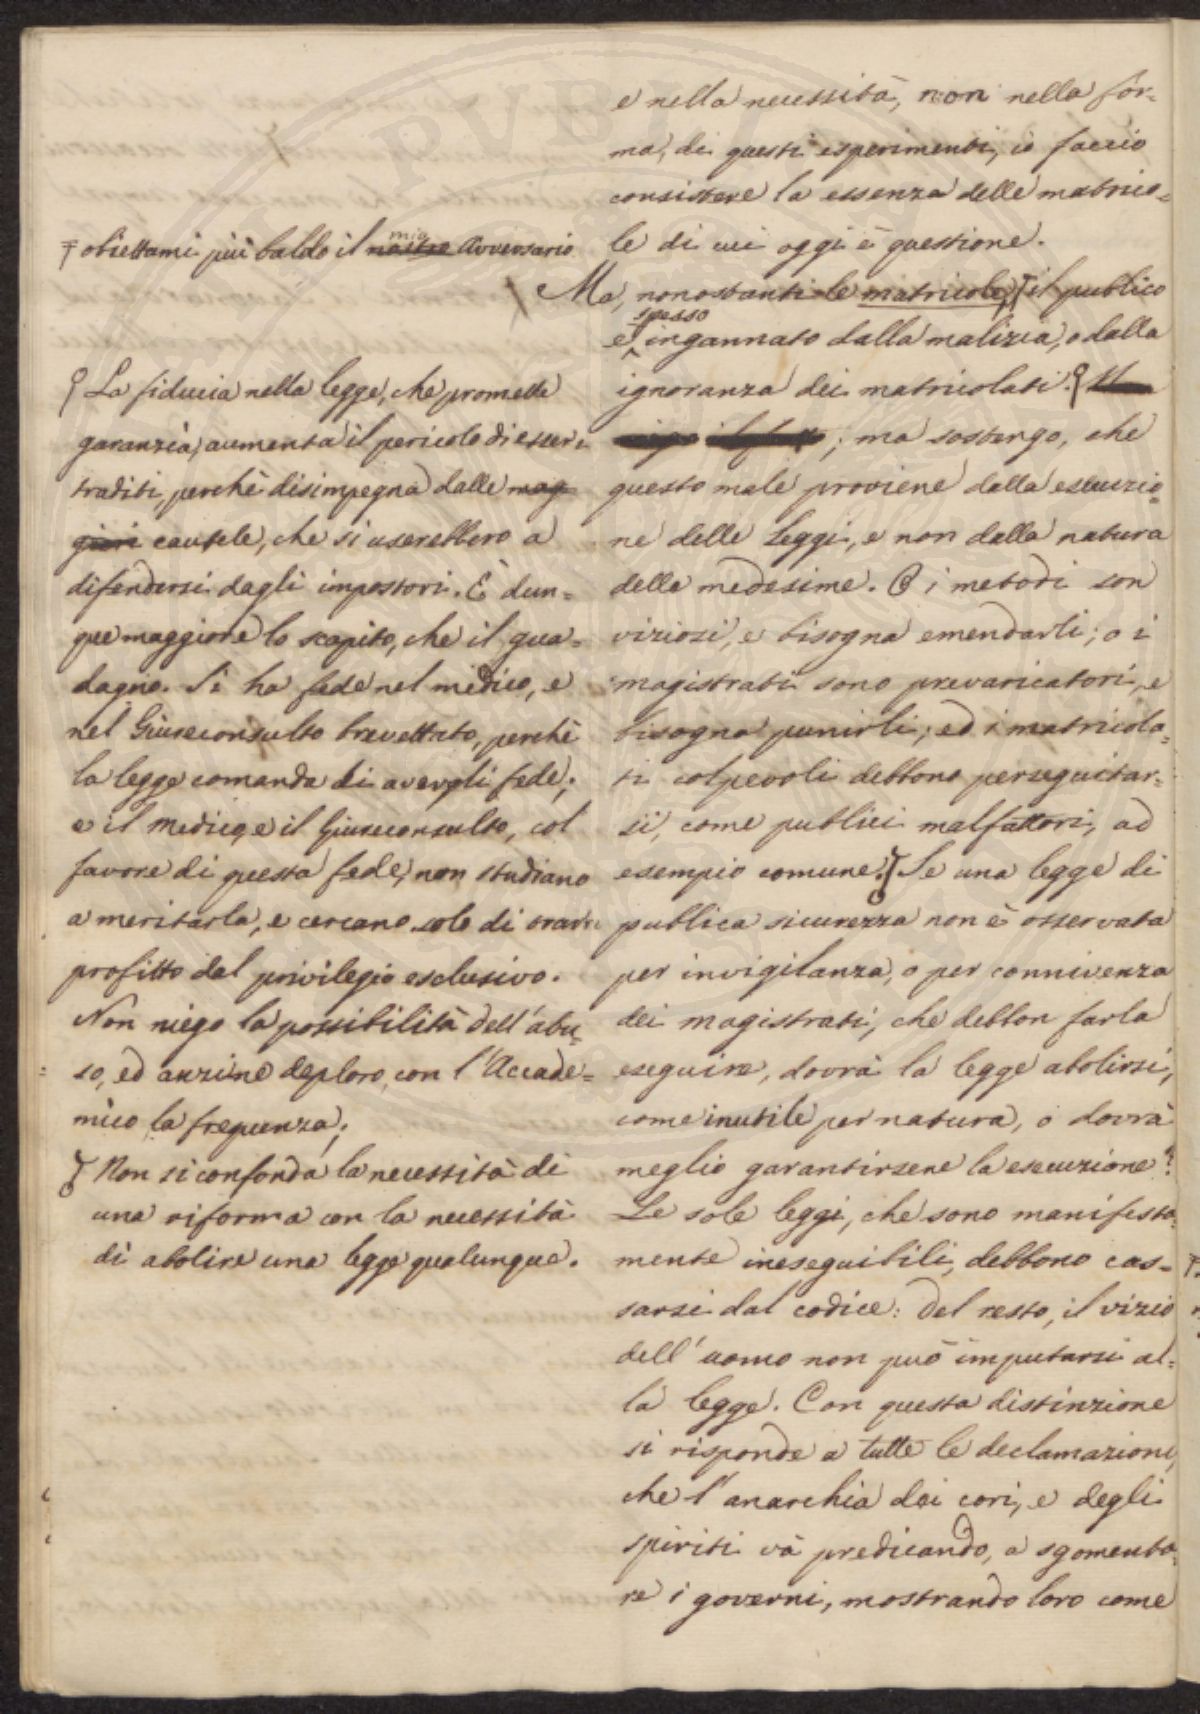 e nella necessità, non nella for-
ma, di questi esperimenti, io faccio
consistere la essenza delle matrico-
le di cui oggi è questione.
Ma, nonostanti le matricole, il publico
spesso
è ingannato dalla malizia, o dalla
ignoranza dei matricolati.
; ma sostengo, che
questo male proviene dalla esecuzio-
ne delle Leggi, e non dalla natura
delle medesime. O i metodi son
viziosi, e bisogna emendarli; o i
magistrati sono prevaricatori, e
bisogna punirli; ed i matricola-
ti colpevoli debbono perseguitar-
si, come publici malfattori, ad
esempio comune. Se una legge di
publica sicurezza non è osservata
per invigilanza, o per connivenza
dei magistrati, che debbon farla
eseguire, dovrà la legge abolirsi,
come inutile per natura, o dovrà
meglio garantirsene la esecuzione?
Le sole leggi, che sono manifesta-
mente ineseguibili, debbono cas-
sarsi dal codice: del resto, il vizio
dell'uomo non può imputarsi al-
la legge. Con questa distinzione
si risponde a tutte le declamazioni,
che l'anarchia dei cori, e degli
spiriti và predicando, a sgomenta-
re i governi, mostrando loro come
mio
obiettami più baldo il nostro Avversario
La fiducia nella legge, che promette
garanzia, aumenta il pericolo di esser
traditi, perchè disimpegna dalle mag
giori cautele, che si userebbero a
difendersi dagli impostori. È dun-
que maggiore lo scapito, che il gua-
dagno. Si ha fede nel medico, e
nel Giureconsulto brevettato, perchè
la legge comanda di avergli fede;
e il medico, e il Giureconsulto, col
favore di questa fede, non studiano
a meritarla, e cercano solo di trarre
profitto dal privilegio esclusivo.
Non niego la possibilità dell'abu-
so, ed anzi ne deploro, con l'Accade-
mico la frequenza;
Non si confonda la necessità di
una riforma con la necessità
di abolire una legge qualunque.